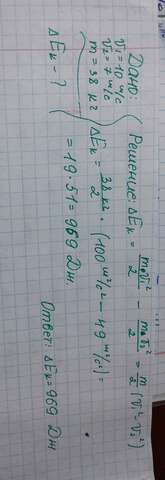 Дано:
v₁ = 10 м/с
v₂ = 7 м/с
m = 38 кг
ΔEк - ?
Решение: ΔEк = mv₁²/2 - mv₂²/2 = m/2 (v₁² - v₂²)
ΔEк = 38 кг/2 · (100 м²/с² - 49 м²/с²) =
= 19 · 51 = 969 Дж.
Ответ: ΔEк = 969 Дж